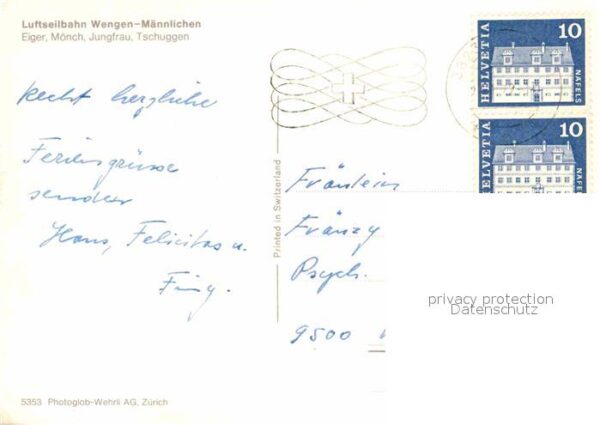 Luftseilbahn Wengen–Männlichen
Eiger, Mönch, Jungfrau, Tschuggen
Recht herzliche
Feriengrüsse
senden
Hans, Felicitas u.
Printed in Switzerland
Fräulein
Fränzy
Psych.
9500
5353 Photoglob-Wehrli AG, Zürich
HELVETIA 10 NÄFELS
HELVETIA 10 NÄFELS
privacy protection
Datenschutz